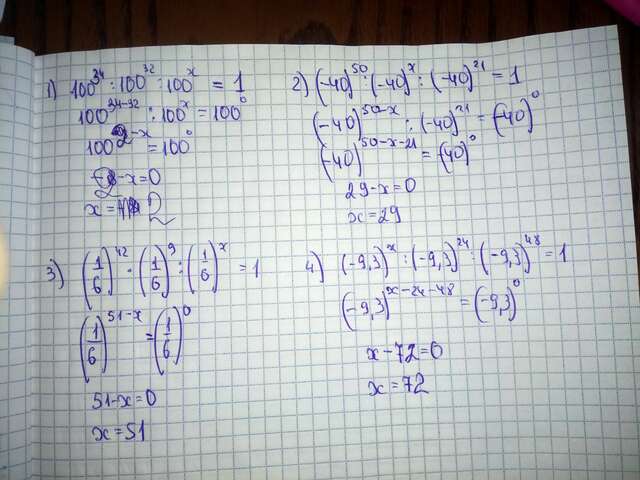 1) 100^24 : 100^32 : 100^x = 1
100^(24-32) : 100^x = 100^0
-x = 100^0
-x=0
x=
2) (-40)^50 : (-40)^x : (-40)^21 = 1
(-40)^(50-x) : (-40)^21 = (40)^0
(-40)^(50-x-21) = (40)^0
29-x=0
x=29
3) (1/6)^42 · (1/6)^9 : (1/6)^x = 1
(1/6)^(51-x) = (1/6)^0
51-x=0
x=51
4) (-9,3)^x : (-9,3)^24 : (-9,3)^48 = 1
(-9,3)^(x-24-48) = (-9,3)^0
x-72=0
x=72